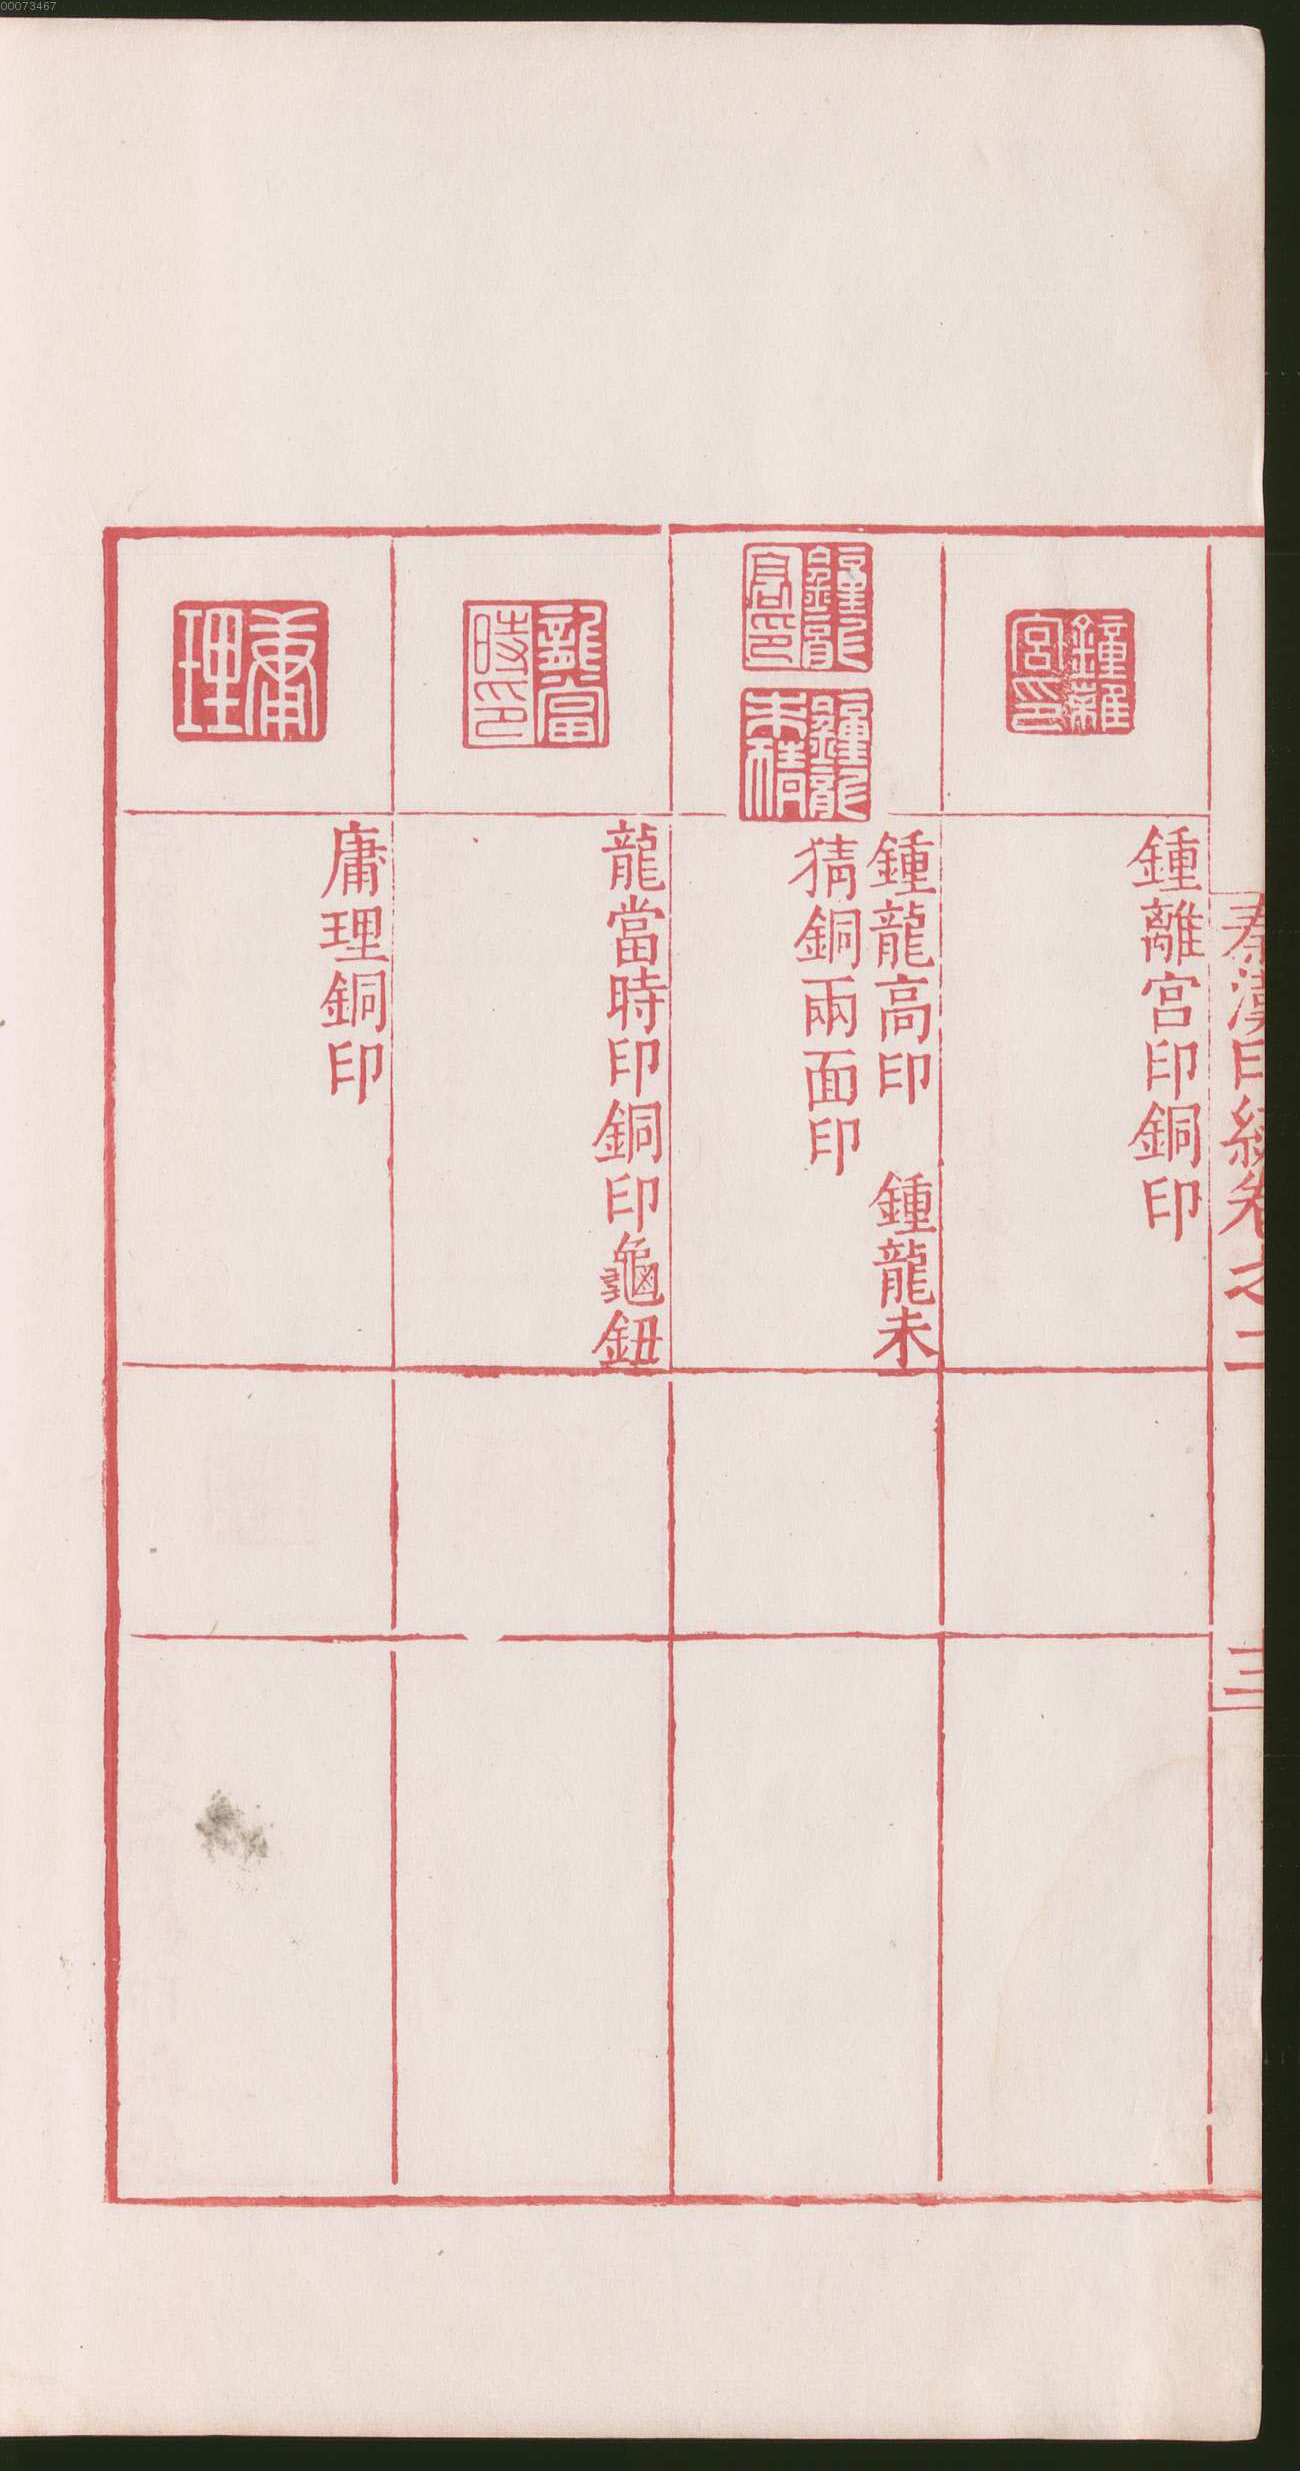 00073467
秦漢印統卷之二
三
鍾離宮印
鍾離宮印銅印
鍾龍高印
鍾龍未猜
鍾龍高印　鍾龍未
猜銅兩面印
龍當時印
龍當時印銅印龜鈕
庸理
庸理銅印